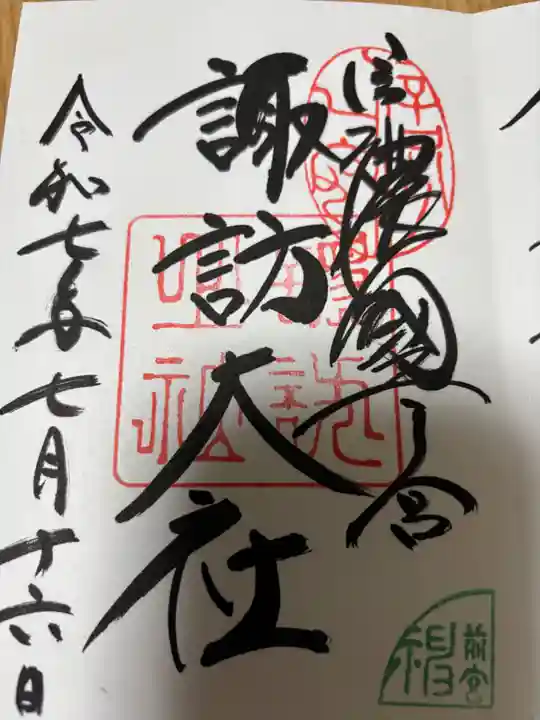 信濃國一宮
諏訪大社
令和七年七月十六日
前宮